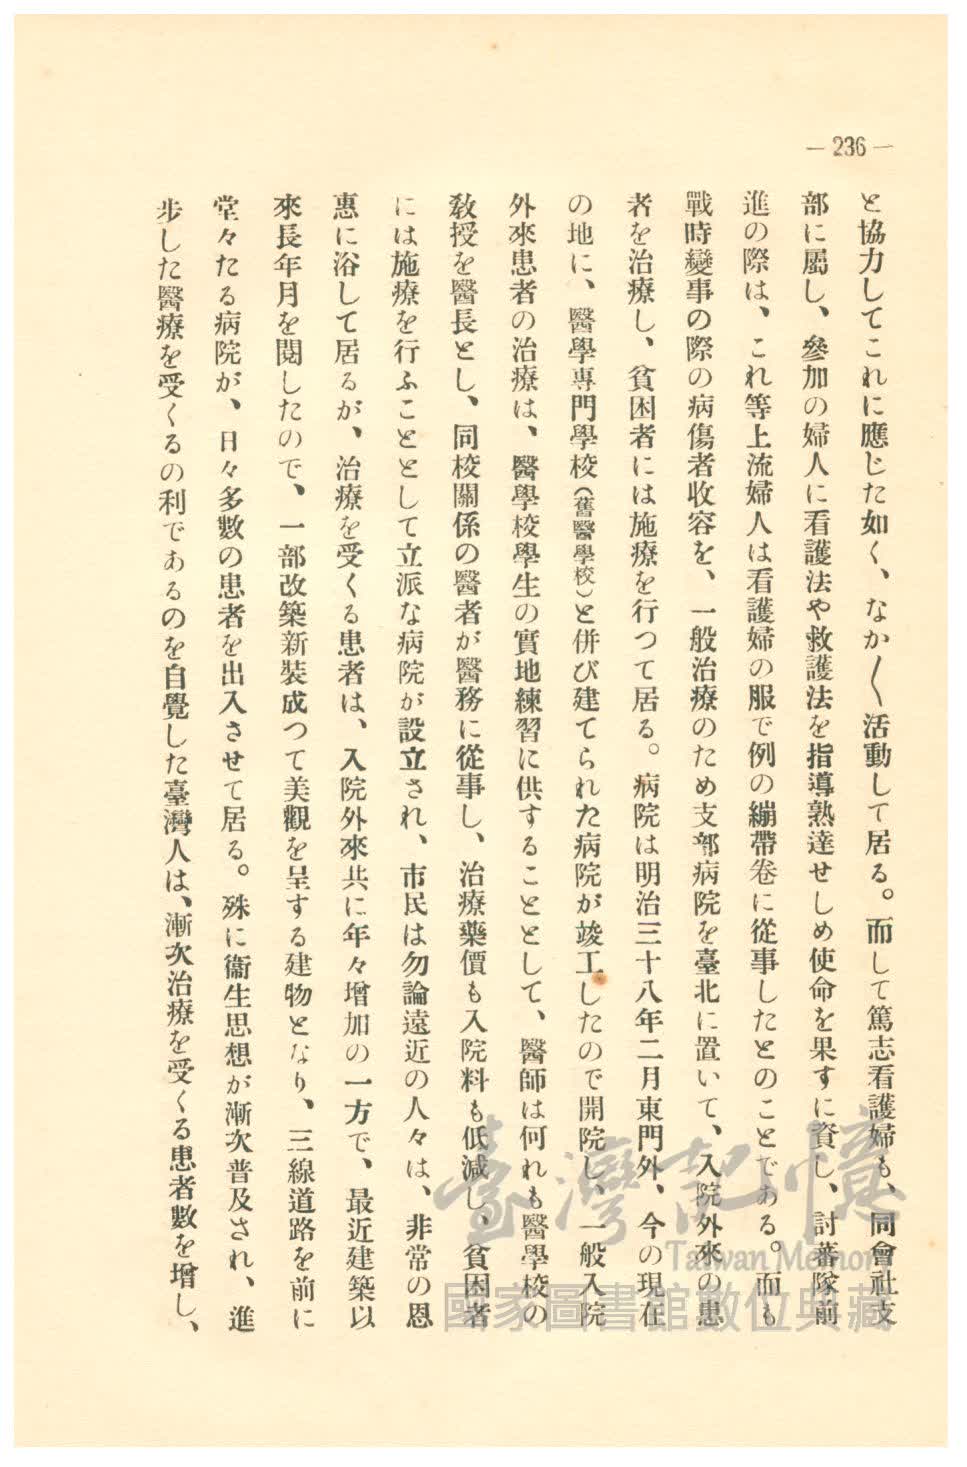 — 236 —
と協力してこれに應じた如く、なか〱活動して居る。而して篤志看護婦も、同會社支
部に屬し、參加の婦人に看護法や救護法を指導熟達せしめ使命を果すに資し、討蕃隊前
進の際は、これ等上流婦人は看護婦の服で例の繃帶卷に從事したとのことである。而も
戰時變事の際の病傷者收容を、一般治療のため支部病院を臺北に置いて、入院外來の患
者を治療し、貧困者には施療を行つて居る。病院は明治三十八年二月東門外、今の現在
の地に、醫學專門學校(舊醫學校)と併び建てられた病院が竣工したので開院し、一般入院
外來患者の治療は、醫學校學生の實地練習に供することとして、醫師は何れも醫學校の
敎授を醫長とし、同校關係の醫者が醫務に從事し、治療藥價も入院料も低減し、貧困者
には施療を行ふこととして立派な病院が設立され、市民は勿論遠近の人々は、非常の恩
惠に浴して居るが、治療を受くる患者は、入院外來共に年々增加の一方で、最近建築以
來長年月を閱したので、一部改築新裝成つて美觀を呈する建物となり、三線道路を前に
堂々たる病院が、日々多數の患者を出入させて居る。殊に衞生思想が漸次普及され、進
步した醫療を受くるの利であるのを自覺した臺灣人は、漸次治療を受くる患者數を增し、
臺灣記憶
Taiwan Memory
國家圖書館數位典藏